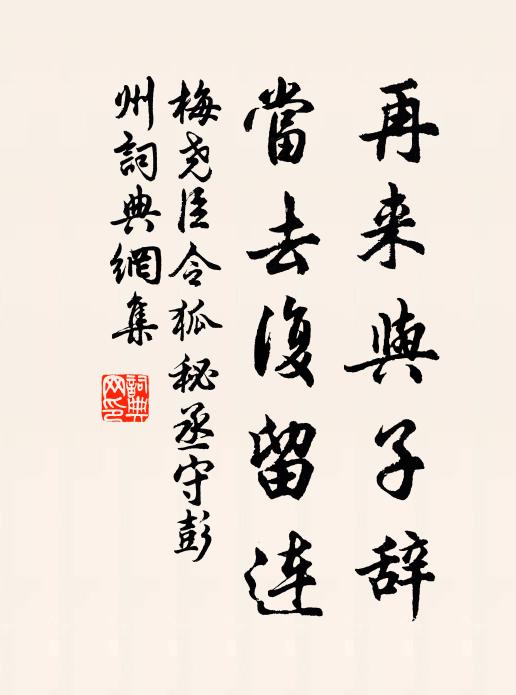 再来與子辞
當去復留連
梅尧臣令狐秘丞守彭
州詞典網集
詞典
网印